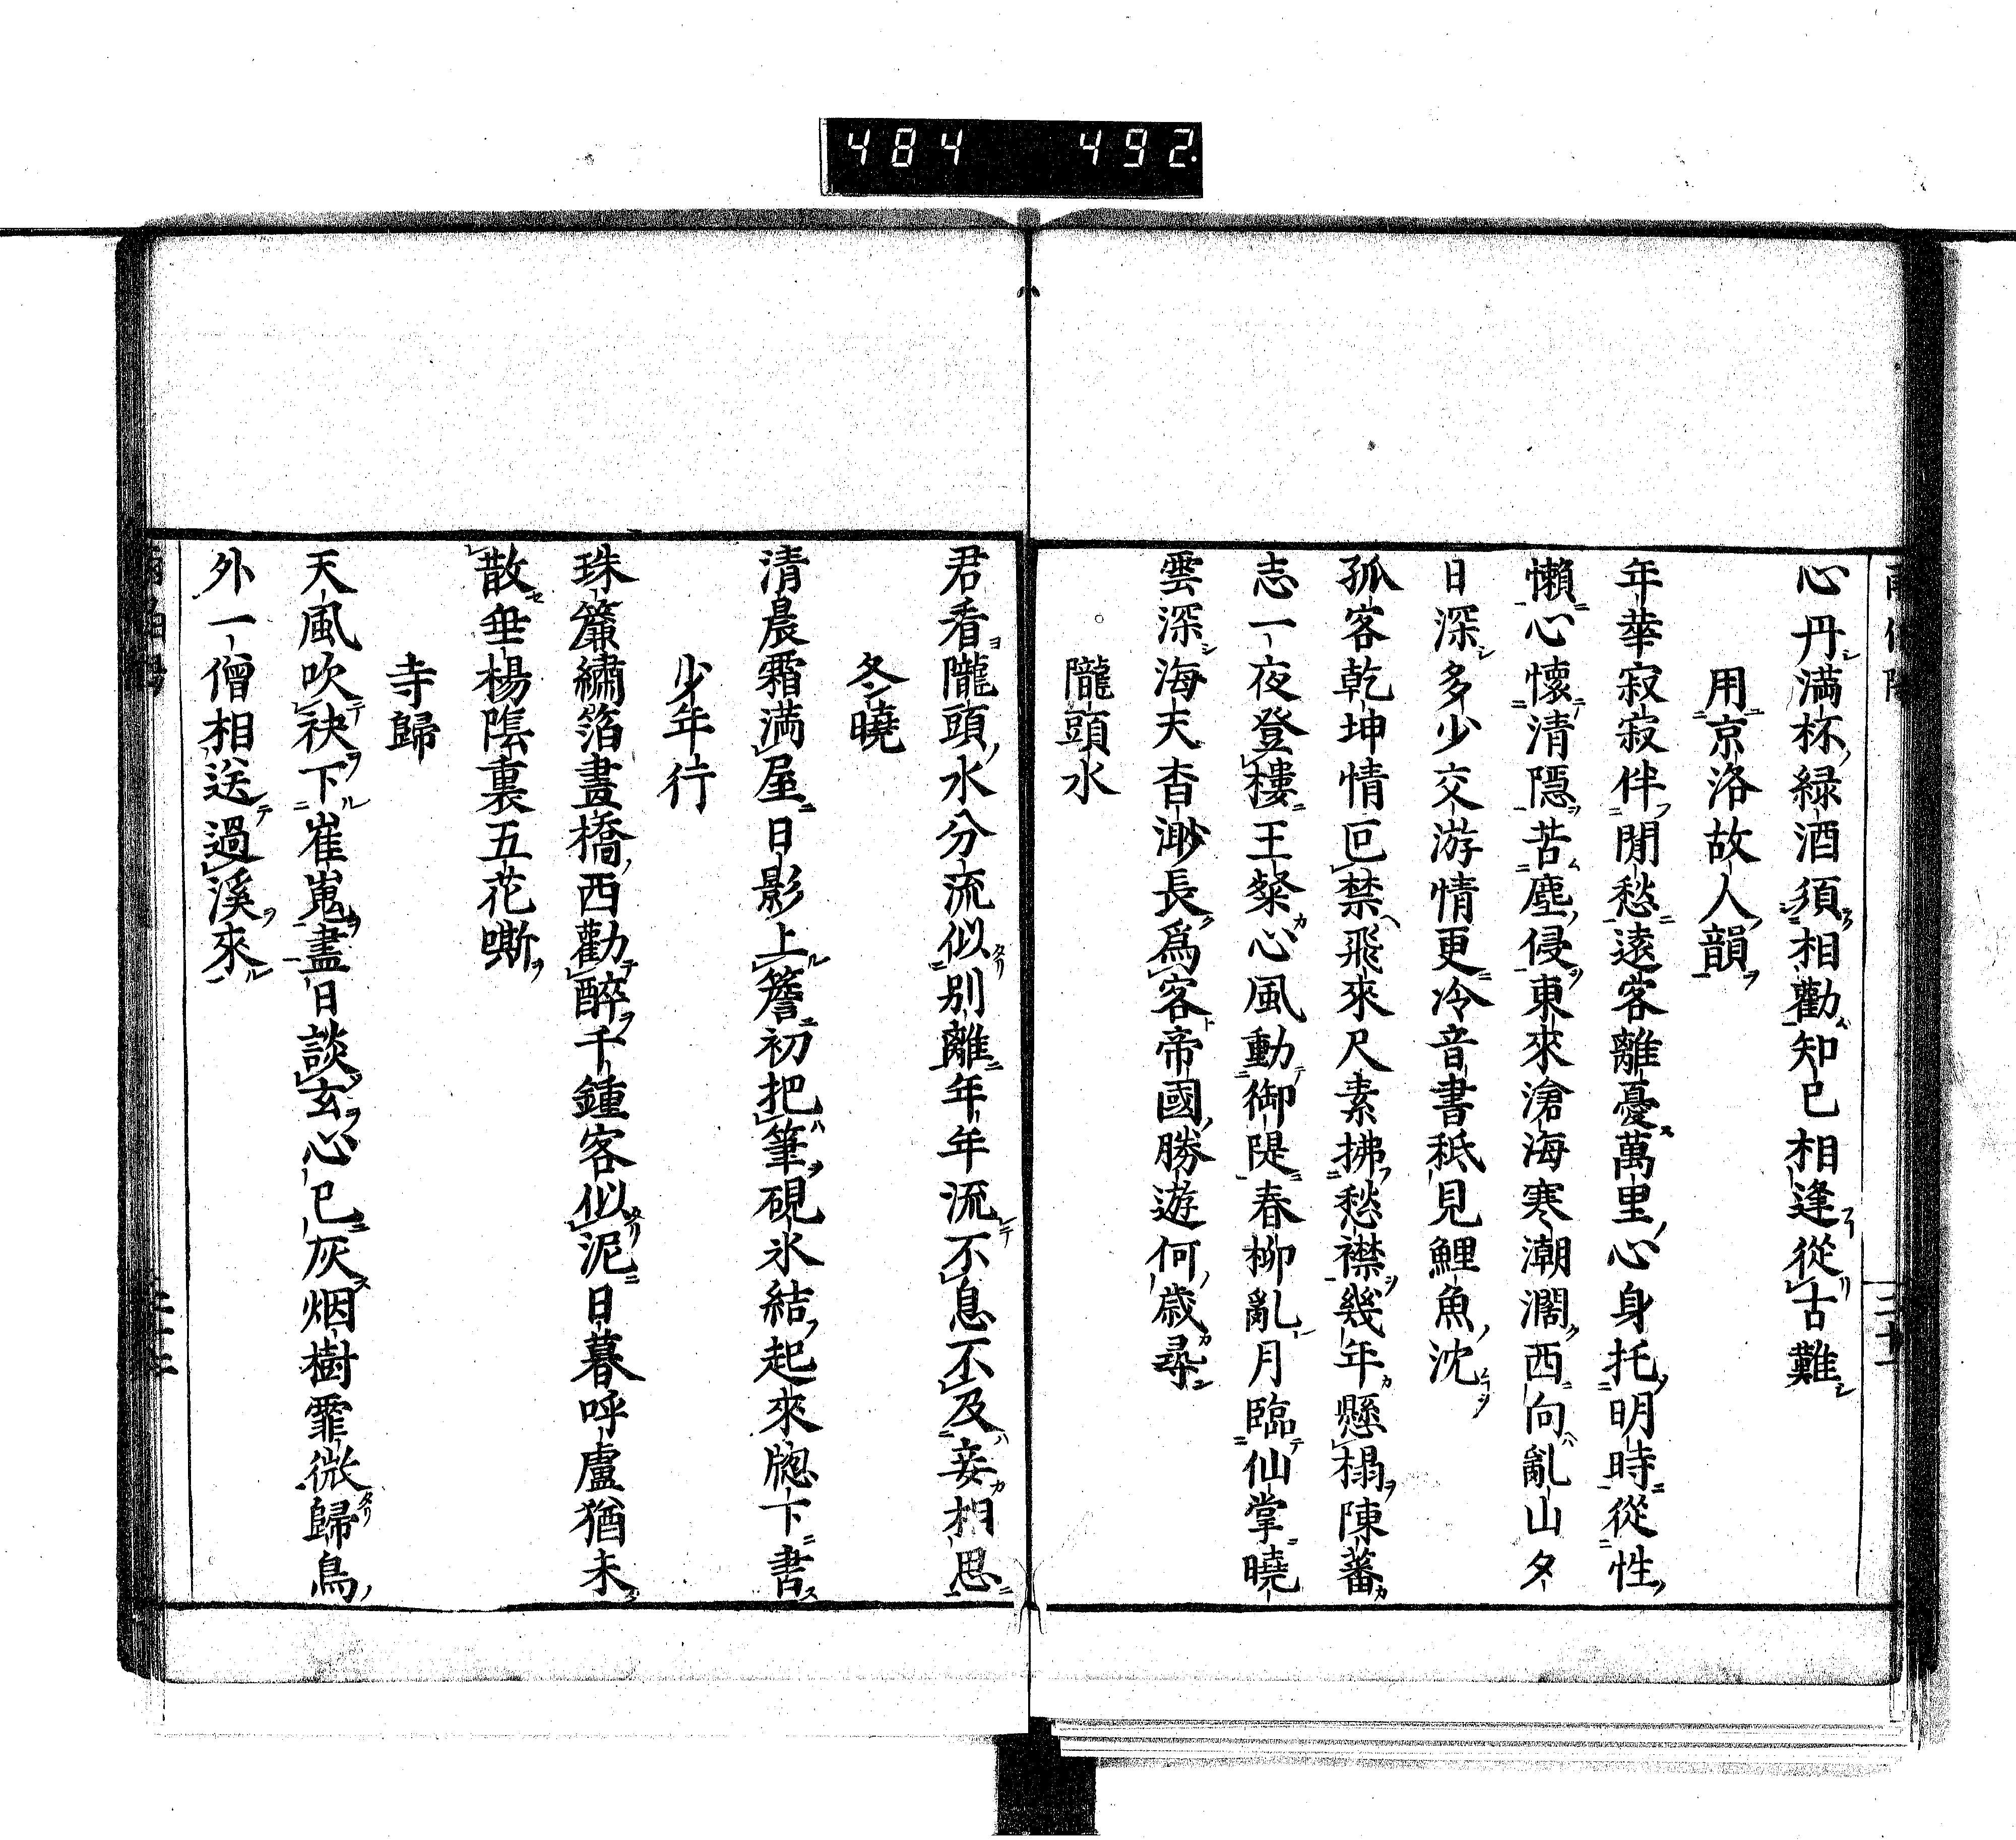 484 492
心丹満杯緑酒須相勸知已相逢從古難
用京洛故人韻
年華寂寂伴閒愁遠客離憂萬里心身托明時從性
懶心懷清隱苦塵侵東來滄海寒潮濶西向亂山夕
日深多少交游情更冷音書秪見鯉魚沈
孤客乾坤情叵禁飛來尺素拂愁襟幾年懸榻陳蕃
志一夜登樓王粲心風動御隄春柳亂月臨仙掌曉
雲深海天杳渺長爲客帝國勝遊何歲尋
隴頭水
君看隴頭水分流似別離年年流不息不及妾相思
冬曉
清晨霜満屋日影上簷初把筆硯氷結起來牕下書
少年行
珠簾繡箔畫橋西勸醉千鍾客似泥日暮呼盧猶未
散垂楊陰裏五花嘶
寺歸
天風吹袂下崔嵬盡日談玄心已灰烟樹霏微歸鳥
外一僧相送過溪來